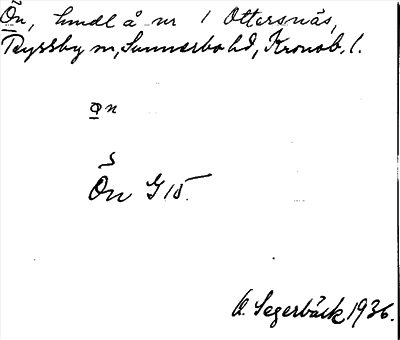 Ön, hmdl å nr 1 Ottersnäs,
Ryssby sn, Sunnerbo hd, Kronob. l.
øn
Ön G 15.
A. Segerbäck 1936.